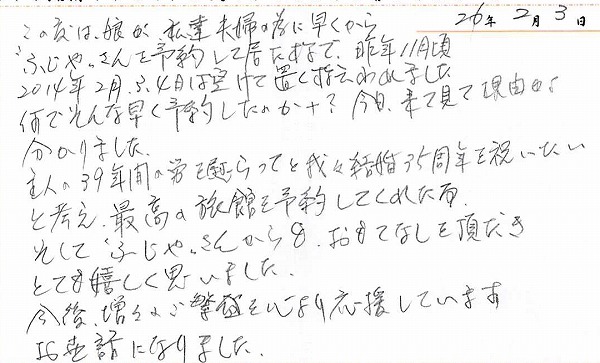 26年 2月 3日
この度は、娘が、私達夫婦の為に早くから
"ふじや"さんを予約して居た様で、昨年11月頃
2014年2月3、4日は空けて置く様言われました
何でそんな早く予約したのか++? 今日、来て見て理由が
分かりました。
主人の39年間の労を慰らってと我々結婚35周年を祝いたい
と考え、最高の旅館を予約してくれた事。
そして"ふじや"さんからも、おもてなしを頂だき
とても嬉しく思いました。
今後、増々のご繁盛を心より応援しています
お世話になりました。